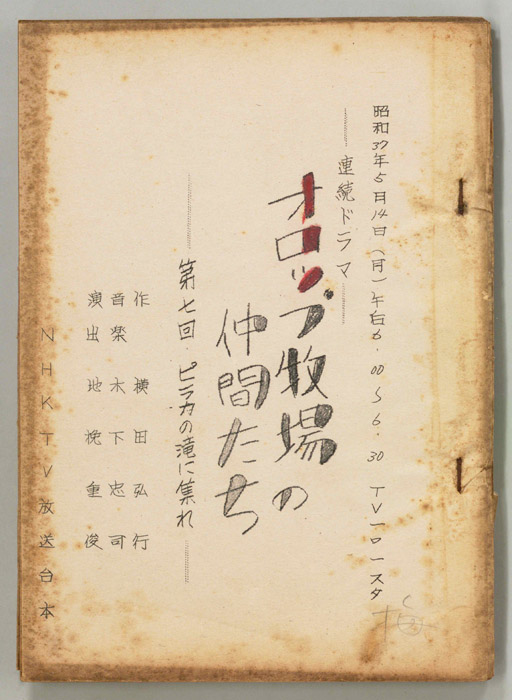 昭和37年5月14日（月）午后6.00〜6.30 TV-ロースタ
連続ドラマ
オロップ牧場の
仲間たち
第七回 ピラカの滝に集れ
作 横田弘行
音楽 木下忠司
演出 地挽重俊
NHKTV放送台本